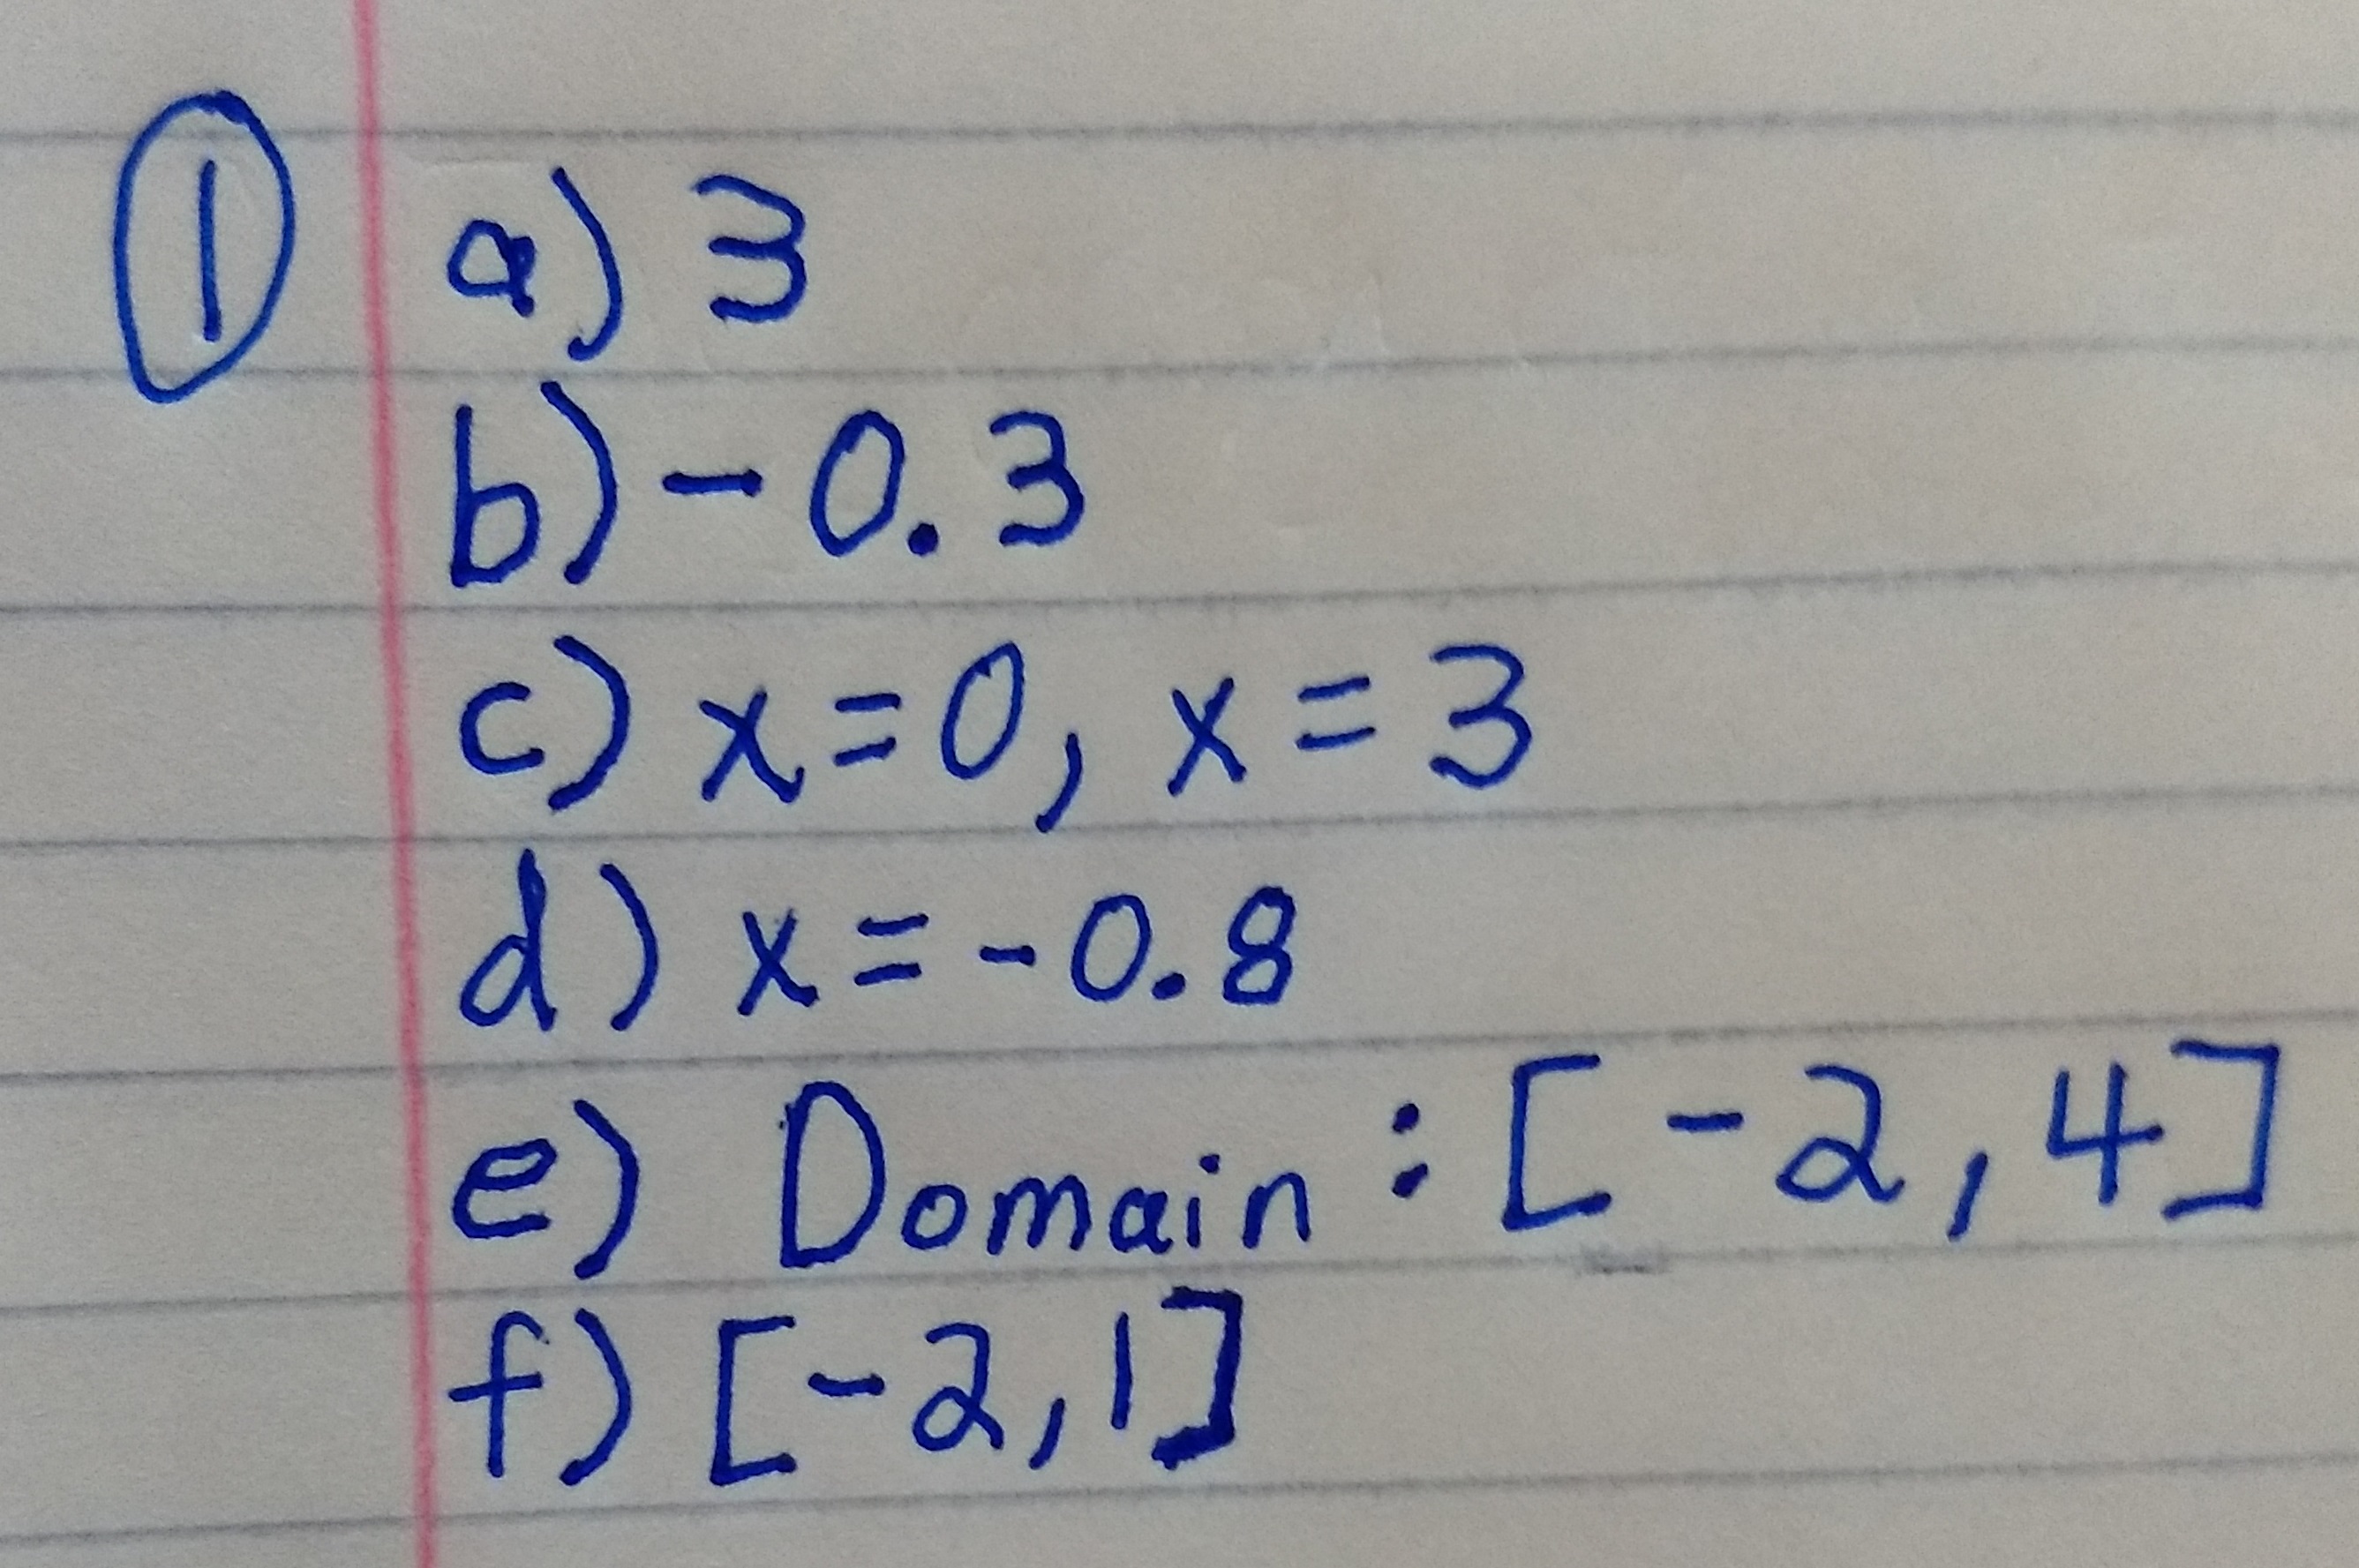 ① a) 3
b) -0.3
c) x=0, x=3
d) x=-0.8
e) Domain: [-2,4]
f) [-2,1]